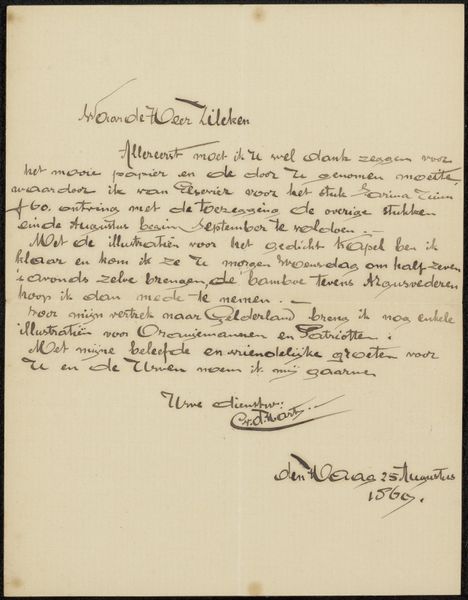 Waarde Heer Zilcken
Allereerst moet ik U wel dank zeggen voor
het mooie papier en de door U genomen moeite
waardoor ik van Elsevier voor het stuk
f 60. ontving met de toezegging de overige stukken
einde Augustus begin September te voldoen. —
Met de illustratiën voor het gedicht Kapel ben ik
klaar en kom ik ze U morgen Woensdag om half zeven
's avonds zelve brengen, de bamboe tevens
hoop ik dan mede te nemen. —
Voor mijn vertrek naar Gelderland breng ik nog enkele
illustratiën voor Oranjemannen en Patriotten.
Met mijne beleefde en vriendelijke groeten voor
U en de Uwen noem ik mij gaarne
Uwe dienstw:
den Haag 25 Augustus